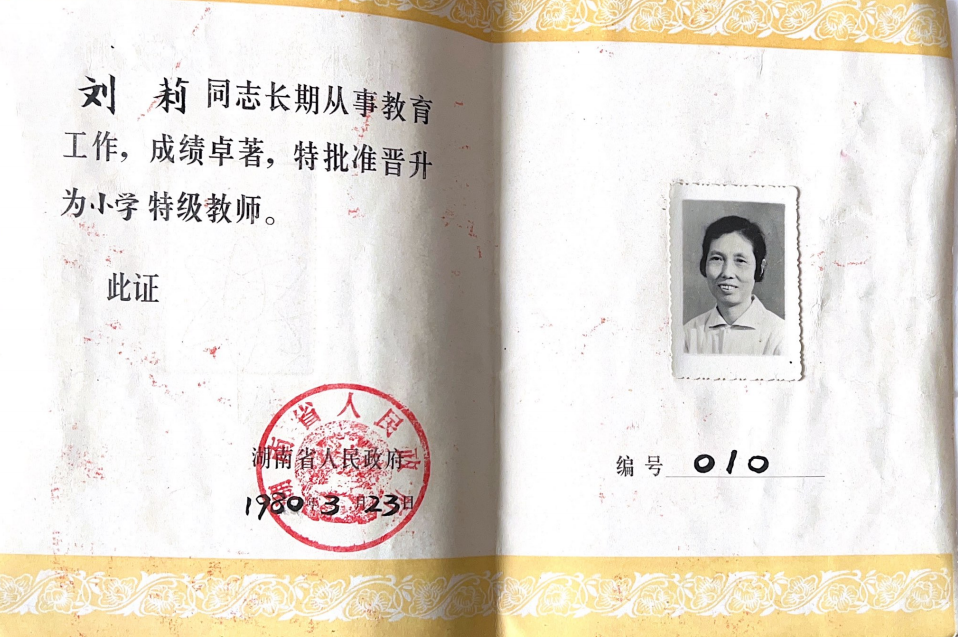 刘 莉 同志长期从事教育
工作，成绩卓著，特批准晋升
为小学特级教师。
此证
湖南省人民政府
湖南省人民政府
1980年3月23日
编号 010